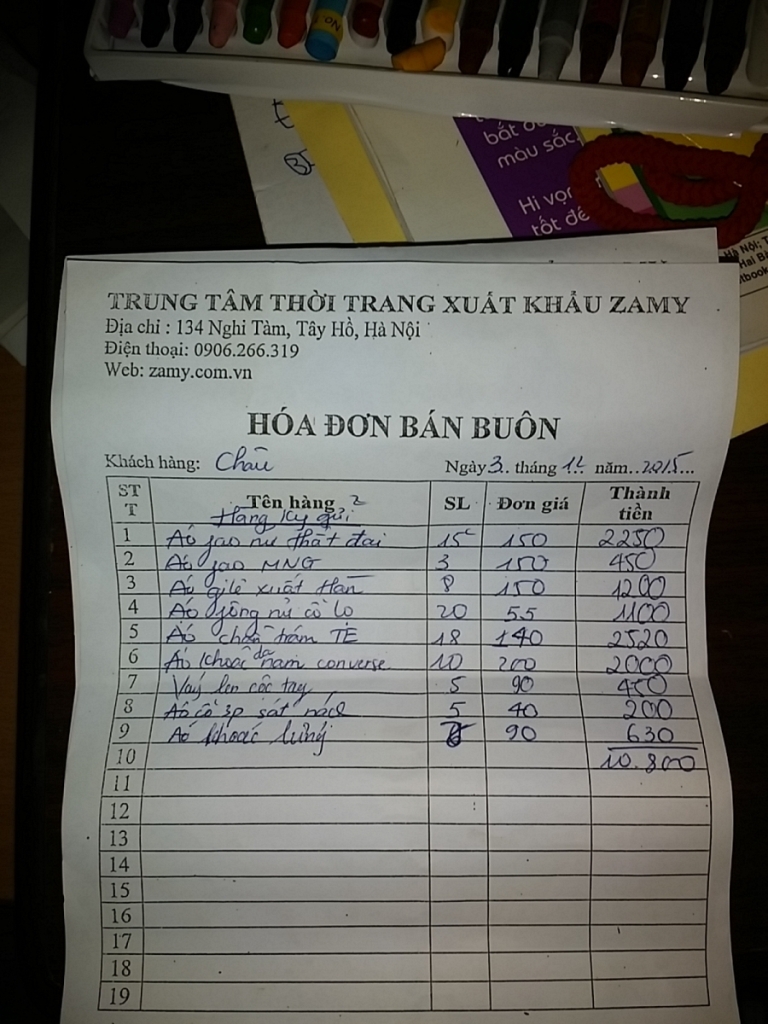 bắt
màu sắc
Hi vọn
tốt để
Hà Nội; T
Hai Bà
tbook
TRUNG TÂM THỜI TRANG XUẤT KHẨU ZAMY
Địa chỉ : 134 Nghi Tàm, Tây Hồ, Hà Nội
Điện thoại: 0906.266.319
Web: zamy.com.vn
HÓA ĐƠN BÁN BUÔN
Khách hàng: Châu Ngày 3 tháng 12 năm 2015
STT Tên hàng SL Đơn giá Thành tiền
Hàng ký gửi
1 Áo jao nữ thắt đai 15c 150 2250
2 Áo jao MNG 3 150 450
3 Áo gilê xuất Hàn 8 150 1200
4 Áo jông nữ cổ lọ 20 55 1100
5 Áo chần trám TE 18 140 2520
6 Áo khoác da nam converse 10 200 2000
7 Váy len cộc tay 5 90 450
8 Áo cổ 3p sát nách 5 40 200
9 Áo khoác lửng 7 90 630
10 10.800
11
12
13
14
15
16
17
18
19